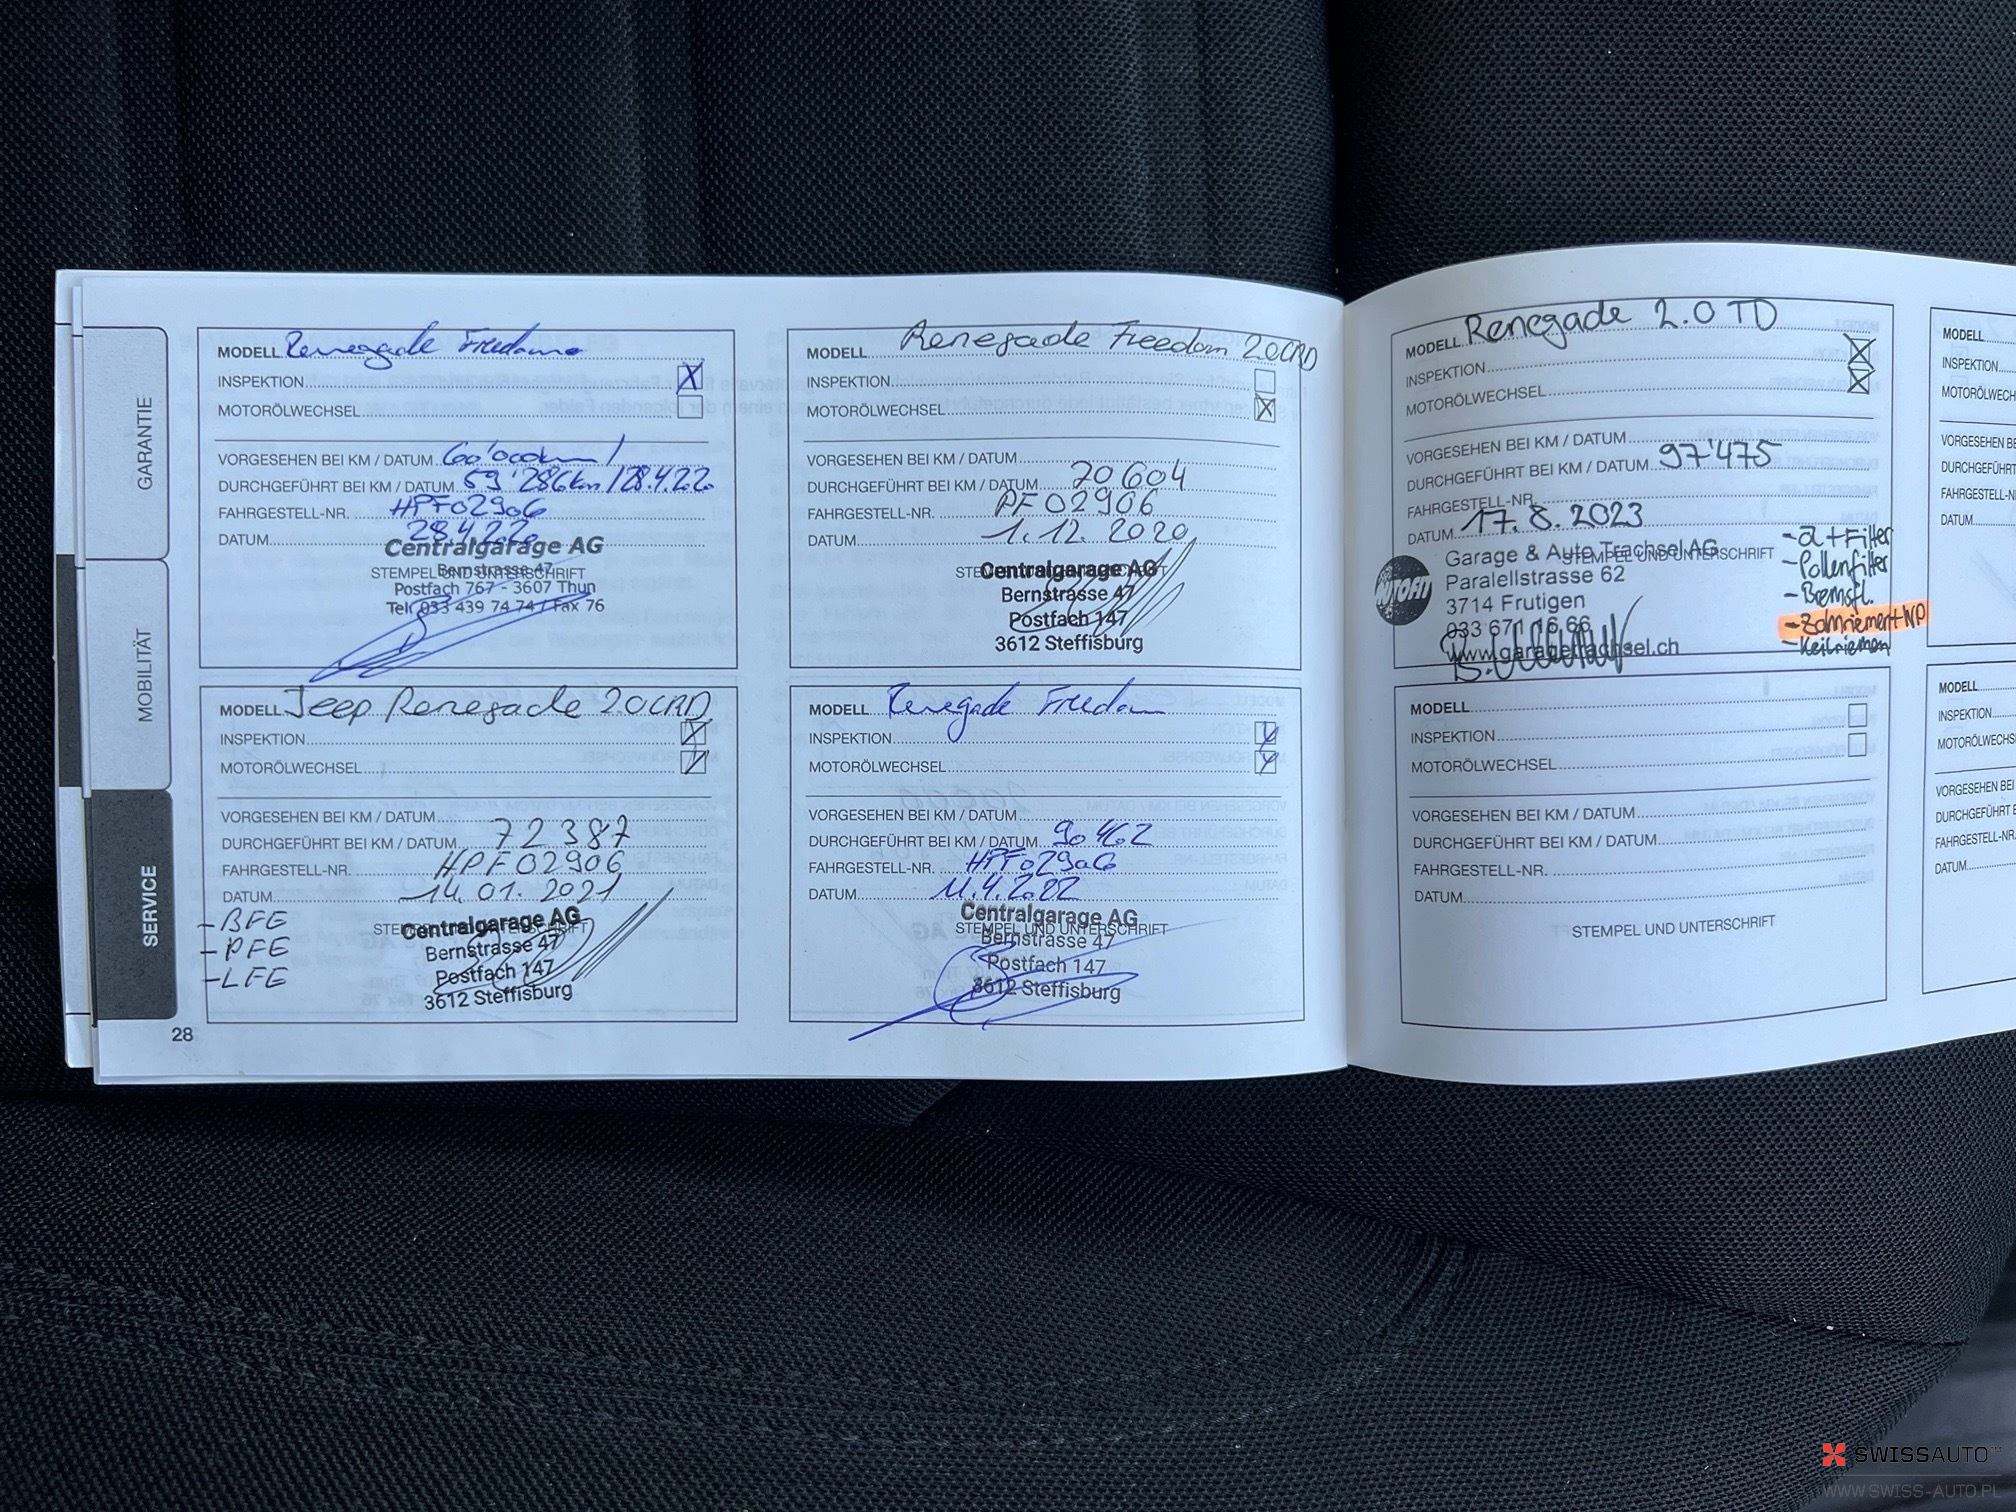 GARANTIE
MOBILITÄT
SERVICE
MODELL Renegade Freedom
INSPEKTION X
MOTORÖLWECHSEL
VORGESEHEN BEI KM / DATUM 60'000km /
DURCHGEFÜHRT BEI KM / DATUM 59'286km / 28.4.20
FAHRGESTELL-NR. HPF02906
DATUM 28.4.20
Centralgarage AG
Bernstrasse 47
STEMPEL UND UNTERSCHRIFT
Postfach 767 - 3607 Thun
Tel. 033 439 74 74 / Fax 76
MODELL Jeep Renegade 2.0CRD
INSPEKTION X
MOTORÖLWECHSEL
VORGESEHEN BEI KM / DATUM
DURCHGEFÜHRT BEI KM / DATUM 72387
FAHRGESTELL-NR. HPF02906
DATUM 14.01.2021
- BFE
- PFE
- LFE
Centralgarage AG
Bernstrasse 47
Postfach 147
3612 Steffisburg
28
MODELL Renegade Freedom 2.0CRD
INSPEKTION
MOTORÖLWECHSEL X
VORGESEHEN BEI KM / DATUM
DURCHGEFÜHRT BEI KM / DATUM 70604
FAHRGESTELL-NR. PF02906
DATUM 1.12.2020
Centralgarage AG
Bernstrasse 47
Postfach 147
3612 Steffisburg
MODELL Renegade Freedom
INSPEKTION
MOTORÖLWECHSEL
VORGESEHEN BEI KM / DATUM
DURCHGEFÜHRT BEI KM / DATUM 90462
FAHRGESTELL-NR. HPF02906
DATUM 11.4.2022
Centralgarage AG
STEMPEL UND UNTERSCHRIFT
Bernstrasse 47
Postfach 147
3612 Steffisburg
MODELL Renegade 2.0 TD
INSPEKTION X
MOTORÖLWECHSEL X
VORGESEHEN BEI KM / DATUM
DURCHGEFÜHRT BEI KM / DATUM 97'475
FAHRGESTELL-NR.
DATUM 17.8.2023
STEMPEL UND UNTERSCHRIFT
AUTOFIT
Garage & Auto Trachsel AG
Paralellstrasse 62
3714 Frutigen
033 671 16 66
www.garagetrachsel.ch
- Öl + Filter
- Pollenfilter
- Bremsfl.
- Zahnriemen + WP
- Keilriemen
MODELL
INSPEKTION
MOTORÖLWECHSEL
VORGESEHEN BEI KM / DATUM
DURCHGEFÜHRT BEI KM / DATUM
FAHRGESTELL-NR.
DATUM
STEMPEL UND UNTERSCHRIFT
MODELL
INSPEKTION
MOTORÖLWECH
VORGESEHEN BEI KM
DURCHGEFÜHRT BE
FAHRGESTELL-NR
DATUM
MODELL
INSPEKTION
MOTORÖLWECHS
VORGESEHEN BEI
DURCHGEFÜHRT B
FAHRGESTELL-NR.
DATUM
SWISSAUTO
WWW.SWISS-AUTO.PL